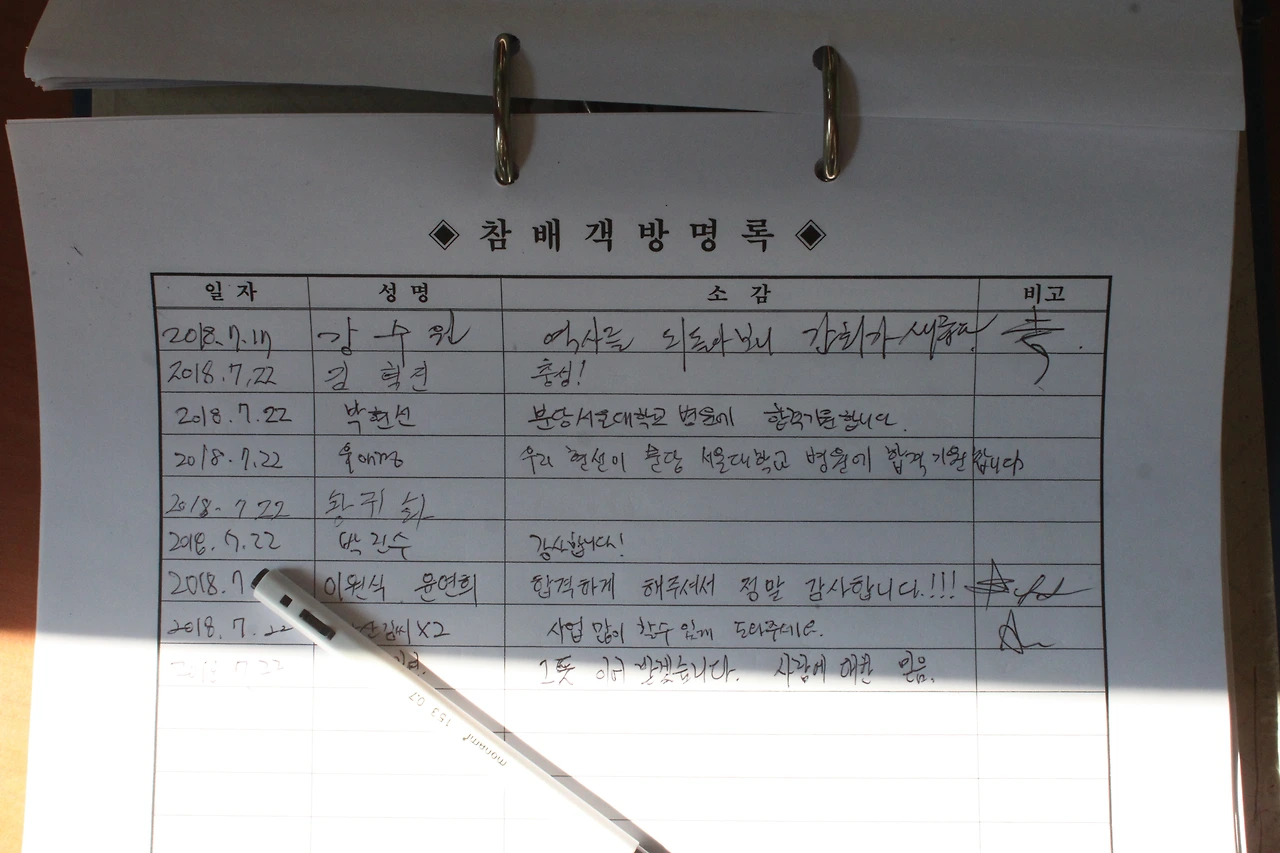 ◈ 참배객방명록 ◈
일자 성명 소감 비고
2018.7.17 강수원 역사를 되돌아보니 감회가 새롭다.
2018.7.22 김혁진 충성!
2018.7.22 박현선 분당서울대학교 병원에 합격기원합니다.
2018.7.22 우리 현선이 분당 서울대학교 병원에 합격기원합니다
2018.7.22
2018.7.22 박진수 감사합니다!
2018.7 이원식 윤연희 합격하게 해주셔서 정말 감사합니다.!!!
2018.7.22 김씨X2 사업 많이 할수 있게 도와주세요.
2018.7.22 그뜻 이어 받겠습니다. 사람에 대한 믿음.
153 0.7
monami